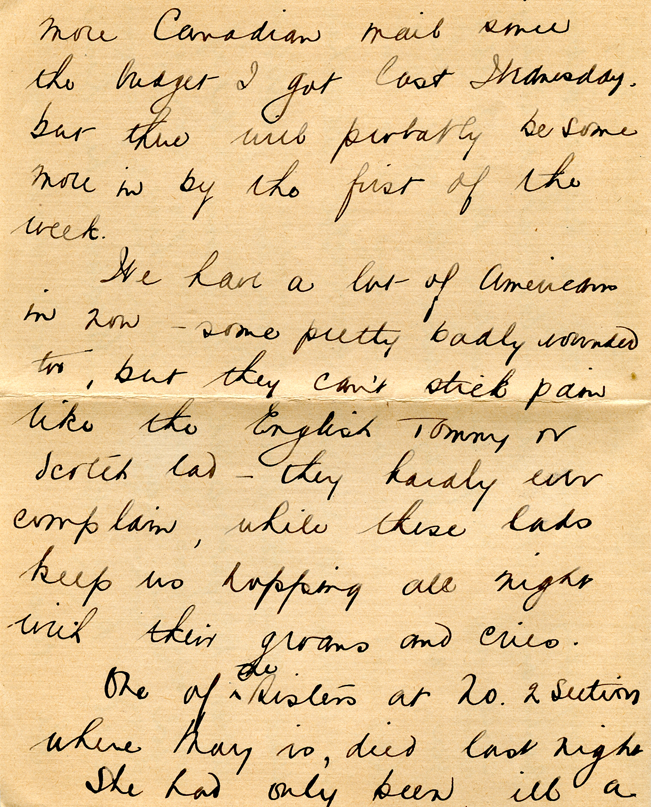 more Canadian mail since
the budget I got last Wednesday.
but there will probably be some
more in by the first of the
week.
We have a lot of Americans
in now – some pretty badly wounded
too, but they can't stick pain
like the English Tommy or
Scotch lad – they hardly ever
complain, while these lads
keep us hopping all night
with their groans and cries.
One of the Sisters at No. 2 Section
where May is, died last night
She had only been ill a